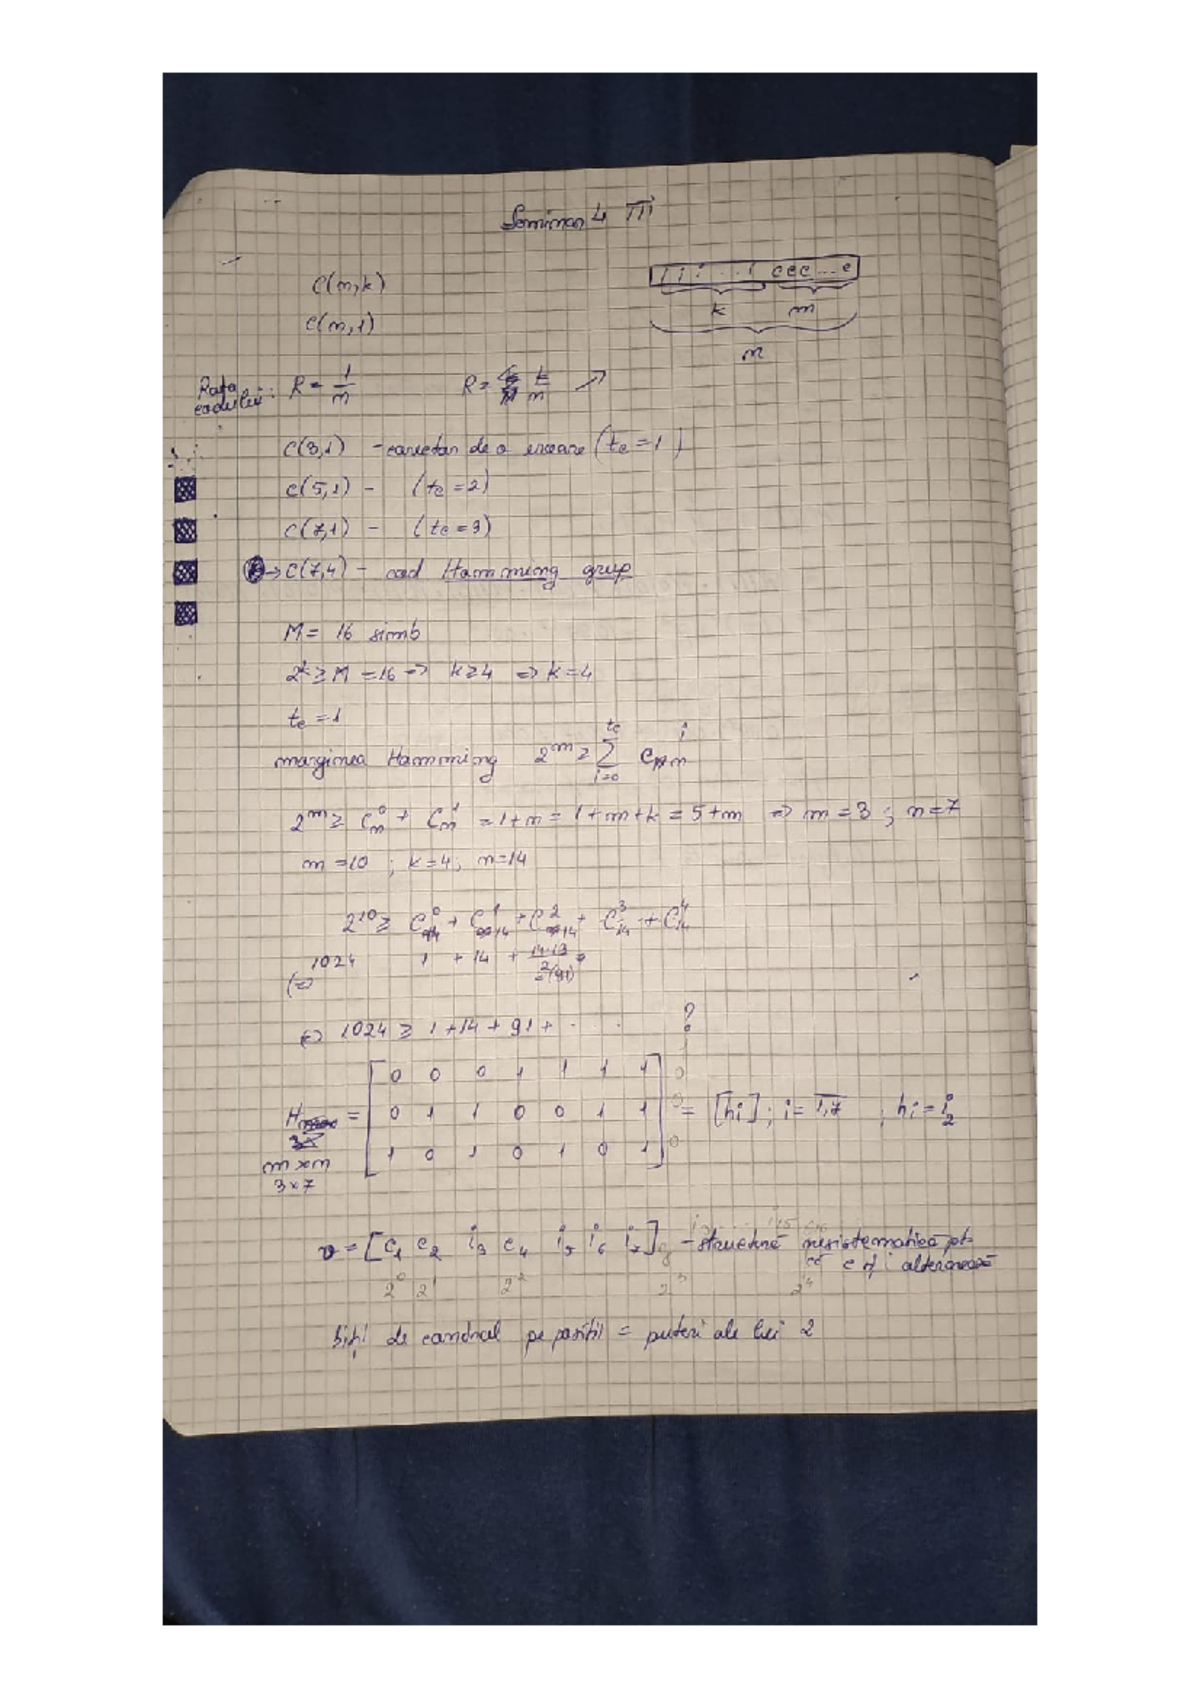 Seminar 4 TTI
C(n,k)
i i i . . . i c c c ... c
C(n,1)
k m
n
Rata codului: R = 1/n R = k/n ↗
C(3,1) - corector de o eroare (tc = 1)
C(5,1) - (tc = 2)
C(7,1) - (tc = 3)
→ C(7,4) - cod Hamming grup
M = 16 simb
2^k ≥ M = 16 => k ≥ 4 => k = 4
tc = 1
marginea Hamming 2^m ≥ Σ_{i=0}^{tc} C_n^i
2^m ≥ C_n^0 + C_n^1 = 1+n = 1+m+k = 5+m => m = 3 ; n = 7
m = 10 ; k = 4 ; n = 14
2^10 ≥ C_14^0 + C_14^1 + C_14^2 + C_14^3 + C_14^4
1024 1 + 14 + 14·13/2 +
(=) = (91)
(=) 1024 ≥ 1 + 14 + 91 + . . . ?
0 0 0 1 1 1 1 0
H = 0 1 1 0 0 1 1 0 = [hi] ; i = 1,7 ; hi = i_2
m×n 1 0 1 0 1 0 1 0
3×7
v = [c1 c2 i3 c4 i5 i6 i7] 8 - structură nesistematică pt. că c și i alternează
2^0 2^1 2^2 2^3 2^4
biți de control pe poziții = puteri ale lui 2